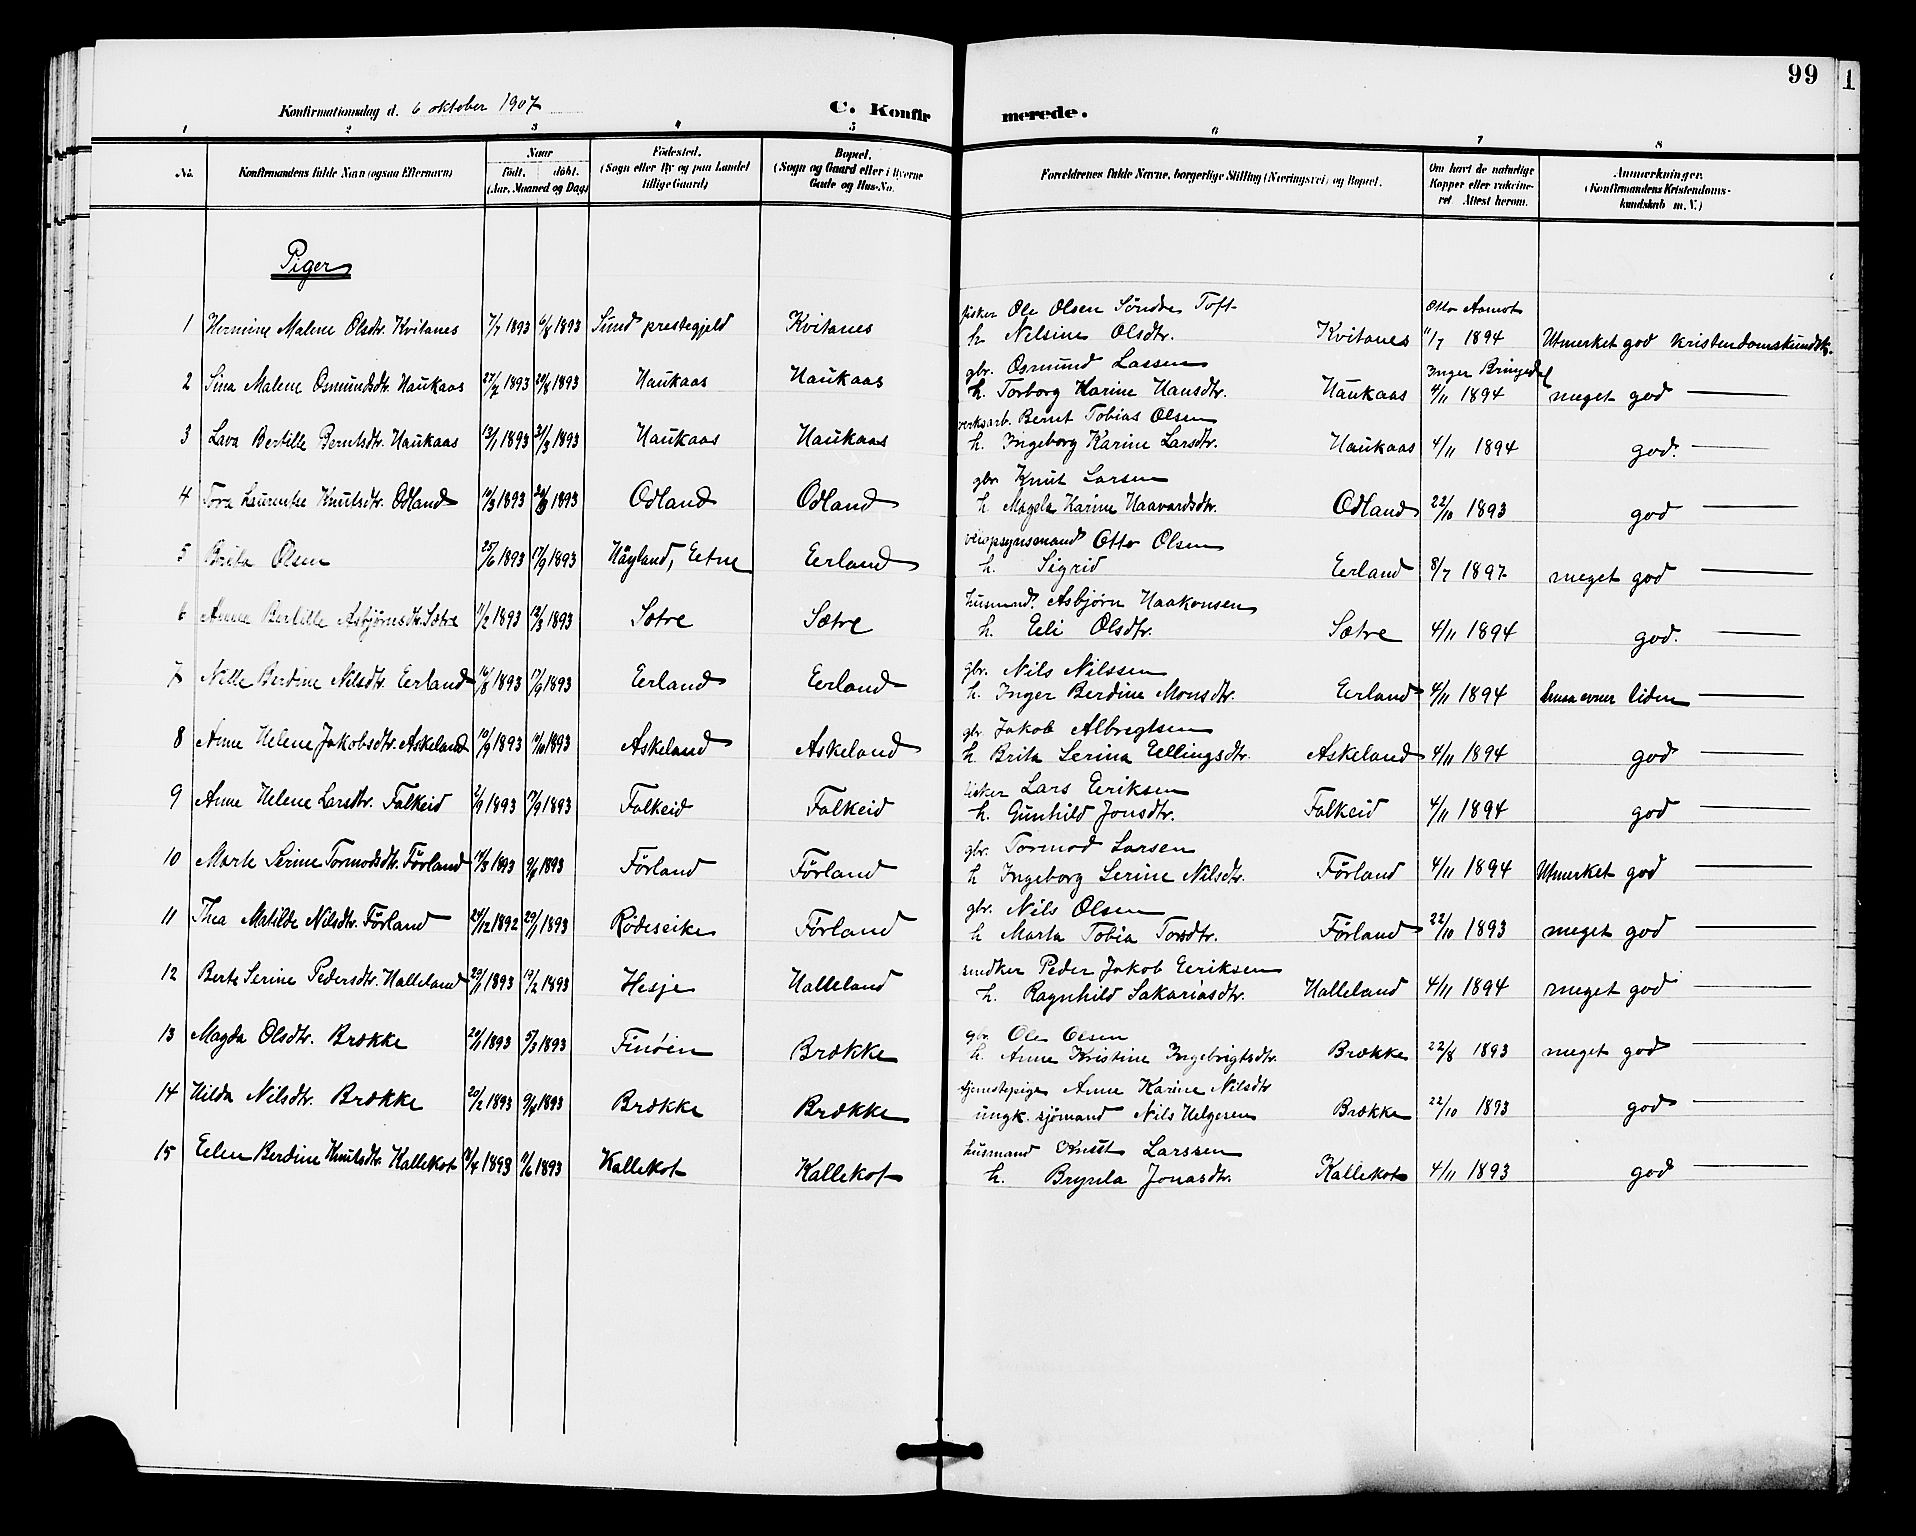 99
1
Konfirmationsdag d. 6 oktober 1907
C. Konfirmerede.
1 2 3 4 5 6 7 8
No.
Konfirmandens fulde Navn (ogsaa Efternavn)
Naar
født. døbt.
(Aar, Maaned og Dag)
Fødested.
(Sogn eller By og paa Landet
tillige Gaard)
Bopæl.
(Sogn og Gaard eller i Byerne
Gade og Hus-No.
Forældrenes fulde Navne, borgerlige Stilling (Næringsvei) og Bopæl.
Om havt de naturlige
Kopper eller vakcine-
ret Attest herom.
Anmerkninger.
(Konfirmandens Kristendoms-
kundskab m. V.)
Piger
fisker Ole Olsen Søndre Toft Otto Aamot
1 Hermine Malene Olsdtr. Kvitanes 7/7 1893 6/8 1893 Sund prestegjeld Kvitanes h Nelsine Olsdtr. Kvitanes 11/7 1894 Utmerket god Kristendomskundsk.
gbr. Osmund Lassen Inger Bringedal
2 Sina Malene Osmundsdtr Haukaas 1893 1893 Haukaas Haukaas h. Torborg Karine Hansdtr. Haukaas 4/11 1894 meget god
verksarb. Bernt Tobias Olsen
3 Lava Bertille Berntsdtr. Haukaas 13/1 1893 31/3 1893 Haukaas Haukaas h. Ingeborg Karine Larsdtr. Haukaas 4/11 1894 god.
gbr Knut Larsen
4 Tora Laurentse Knutsdtr. Odland 10/3 1893 1893 Odland Odland h. Magela Karine Haavardsdtr. Odland 22/10 1893 god
veiopsynsmand Otto Olsen
5 Brita Olsen 25/6 1893 17/9 1893 Høyland, Eetne Eerland h. Sigrid Eerland 8/7 1897 meget god
husmand. Asbjørn Haakonsen
6 Anne Bertille Asbjørnsdtr. Sætre 11/2 1893 12/3 1893 Sætre Sætre h. Eeli Olsdtr. Sætre 4/11 1894 god.
gbr. Nils Nilssen
7 Nille Berdine Nilsdtr. Eerland 16/8 1893 17/9 1893 Eerland Eerland h. Inger Berdine Monsdtr. Eerland 4/11 1894 smaa evner liden
gbr Jakob Albregtsen
8 Anne Helene Jakobsdtr. Askeland 10/9 1893 1893 Askeland Askeland h. Brita Serina Eellingsdtr. Askeland 4/11 1894 god
fisker Lars Eeriksen
9 Anne Helene Larsdtr. Falkeid 2/9 1893 17/9 1893 Falkeid Falkeid h. Gunhild Jonsdtr. Falkeid 4/11 1894 god
gbr. Tormod Larsen
10 Marte Serine Tormodsdtr. Førland 1893 1893 Førland Førland h Ingeborg Serine Nilsdtr. Førland 4/11 1894 Utmerket god
gbr. Nils Olsen
11 Thea Matilde Nilsdtr. Førland 24/12 1892 29/1 1893 Rødeseike Førland h Marta Tobia Torsdtr. Førland 22/10 1893 meget god
snedker Peder Jakob Eeriksen
12 Berte Serine Pedersdtr. Halleland 29/1 1893 19/2 1893 Hesje Halleland h. Ragnhild Sakariasdtr. Halleland 4/11 1894 meget god
gbr. Ole Olsen
13 Magda Olsdtr. Brække 20/1 1893 5/3 1893 Finøen Brække h. Anne Kristine Ingebrigtsdtr. Brække 22/8 1893 meget god
tjenstepige Anne Karine Nilsdtr
14 Hilda Nilsdtr. Brække 20/2 1893 9/4 1893 Brække Brække ungk. sjømand Nils Helgesen Brække 22/10 1893 god
husmand Knut Larssen
15 Eelen Berdine Knutsdtr. Kallekot 1893 11/6 1893 Kallekot Kallekot h. Brynla Jonasdtr. Kallekot 4/11 1893 god